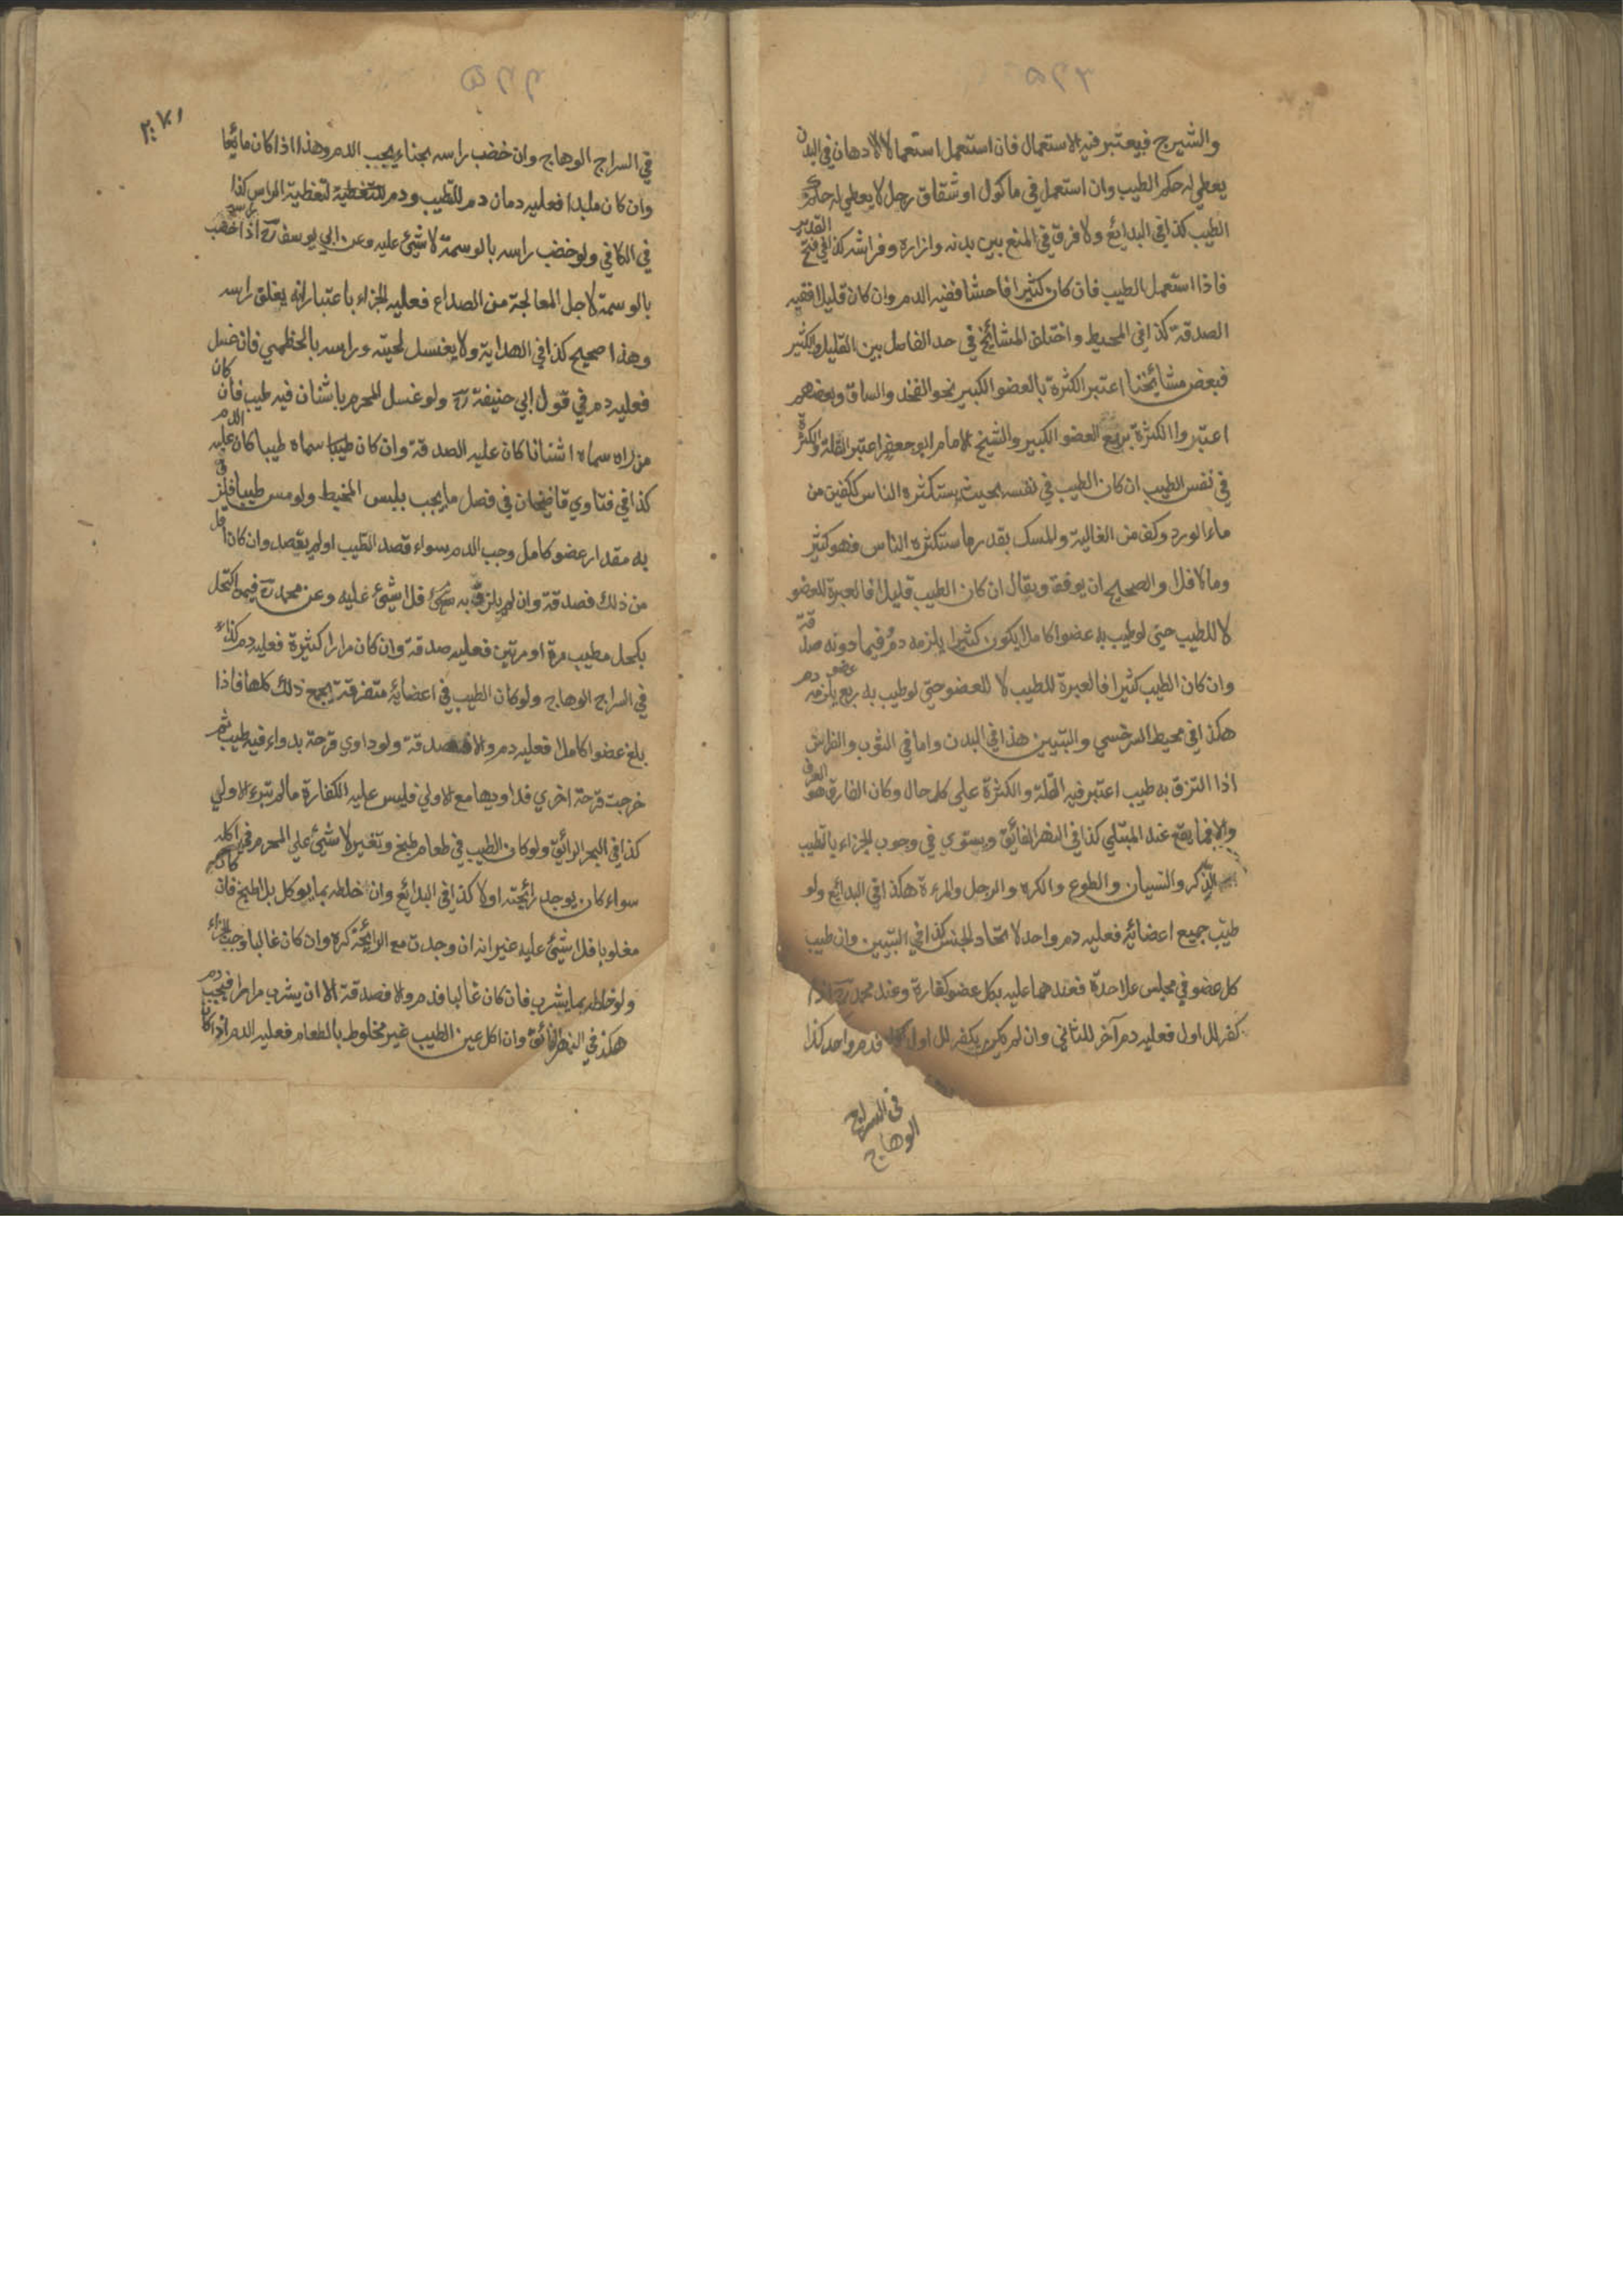 والشيرج فيعتبر فيه الاستعمال فان استعمل استعمال الادهان في البدن
يعطي له حكم الطيب وان استعمل في ماكول او شقاق رجل لا يعطي له حكم
الطيب كذا في البدائع ولا فرق في المنع بين بدنه وازاره وفراشه كذا في فتح القدير
فاذا استعمل الطيب فان كان كثيرا فاحشا ففيه الدم وان كان قليلا ففيه
الصدقة كذا في المحيط واختلف المشائخ في حد الفاصل بين القليل والكثير
فبعض مشائخنا اعتبر الكثرة بالعضو الكبير نحو الفخذ والساق وبعضهم
اعتبروا الكثرة بربع العضو الكبير والشيخ الامام ابو جعفر اعتبر القلة والكثرة
في نفس الطيب ان كان الطيب في نفسه بحيث يستكثره الناس ككفين من
ماء الورد وكف من الغالية والمسك بقدر ما ستكثره الناس فهو كثير
وما لا فلا والصحيح ان يوفق ويقال ان كان الطيب قليلا فالعبرة للعضو
لا للطيب حتى لو طيب به عضوا كاملا يكون كثيرا يلزمه دم فيما دونه صدقة
وان كان الطيب كثيرا فالعبرة للطيب لا للعضو حتى لو طيب به ربع عضو يلزمه دم
هكذا في محيط السرخسي والتبيين هذا في البدن واما في الثوب والفراش
اذا التزق به طيب اعتبر فيه القلة والكثرة على كل حال وكان الفارق هو العرف
والا فما يقع عند المبتلي كذا في النهر الفائق ويستوي في وجوب الجزاء بالطيب
الذكر والنسيان والطوع والكره والرجل والمرءة هكذا في البدائع ولو
طيب جميع اعضائه فعليه دم واحد لاتحاد الجنس كذا في التبيين وان طيب
كل عضو في مجلس علاحدة فعندهما عليه بكل عضو كفارة وعند محمد رح اذا
كفر للاول فعليه دم آخر للثاني وان لم يكفر للاول فدم واحد كذا
في السراج
الوهاج
في السراج الوهاج وان خضب راسه بحناء يجب الدم وهذا اذا كان مائعا
وان كان ملبدا فعليه دمان دم للتطيب ودم للتغطية لتغطية الراس كذا
في الكافي ولو خضب راسه بالوسمة لا شيئ عليه وعن ابي يوسف رح اذا خضب راسه
بالوسمة لاجل المعالجة من الصداع فعليه الجزاء باعتبار انه يغلق راسه
وهذا صحيح كذا في الهداية ولا يغسل لحيته وراسه بالخطمي فان غسل
فعليه دم في قول ابي حنيفة رح ولو غسل المحرم باشنان فيه طيب فان كان
من راه سماه اشنانا كان عليه الصدقة وان كان طيبا سماه طيبا كان عليه الدم
كذا في فتاوي قاضيخان في فصل ما يجب بلبس المخيط ولو مس طيبا فلزق
به مقدار عضو كامل وجب الدم سواء قصد التطيب او لم يقصد وان كان اقل
من ذلك فصدقة وان لم يلزق به شيئ فلا شيئ عليه وعن محمد رح فيمن اكتحل
بكحل مطيب مرة او مرتين فعليه صدقة وان كان مرارا كثيرة فعليه دم كذا
في السراج الوهاج ولو كان الطيب في اعضائه متفرقة يجمع ذلك كلها فاذا
بلغ عضوا كاملا فعليه دم والا فصدقة ولو داوي قرحة بدواء فيه طيب ثم
خرجت قرحة اخري فداويها مع الاولي فليس عليه الكفارة ما لم تبرء الاولي
كذا في البحر الرائق ولو كان الطيب في طعام طبخ وتغير لا شيئ علي المحرم في اكله
سواء كان يوجد رائحته او لا كذا في البدائع وان خلطه بما يوكل بلا طبخ فان كان
مغلوبا فلا شيئ عليه غير انه ان وجدت مع الرائحة كره وان كان غالبا وجب الجزاء
ولو خلطه بما يشرب فان كان غالبا فدم والا فصدقة الا ان يشرب مرارا فيجب دم
هكذا في النهر الفائق وان اكل عين الطيب غير مخلوط بالطعام فعليه الدم اذا كان